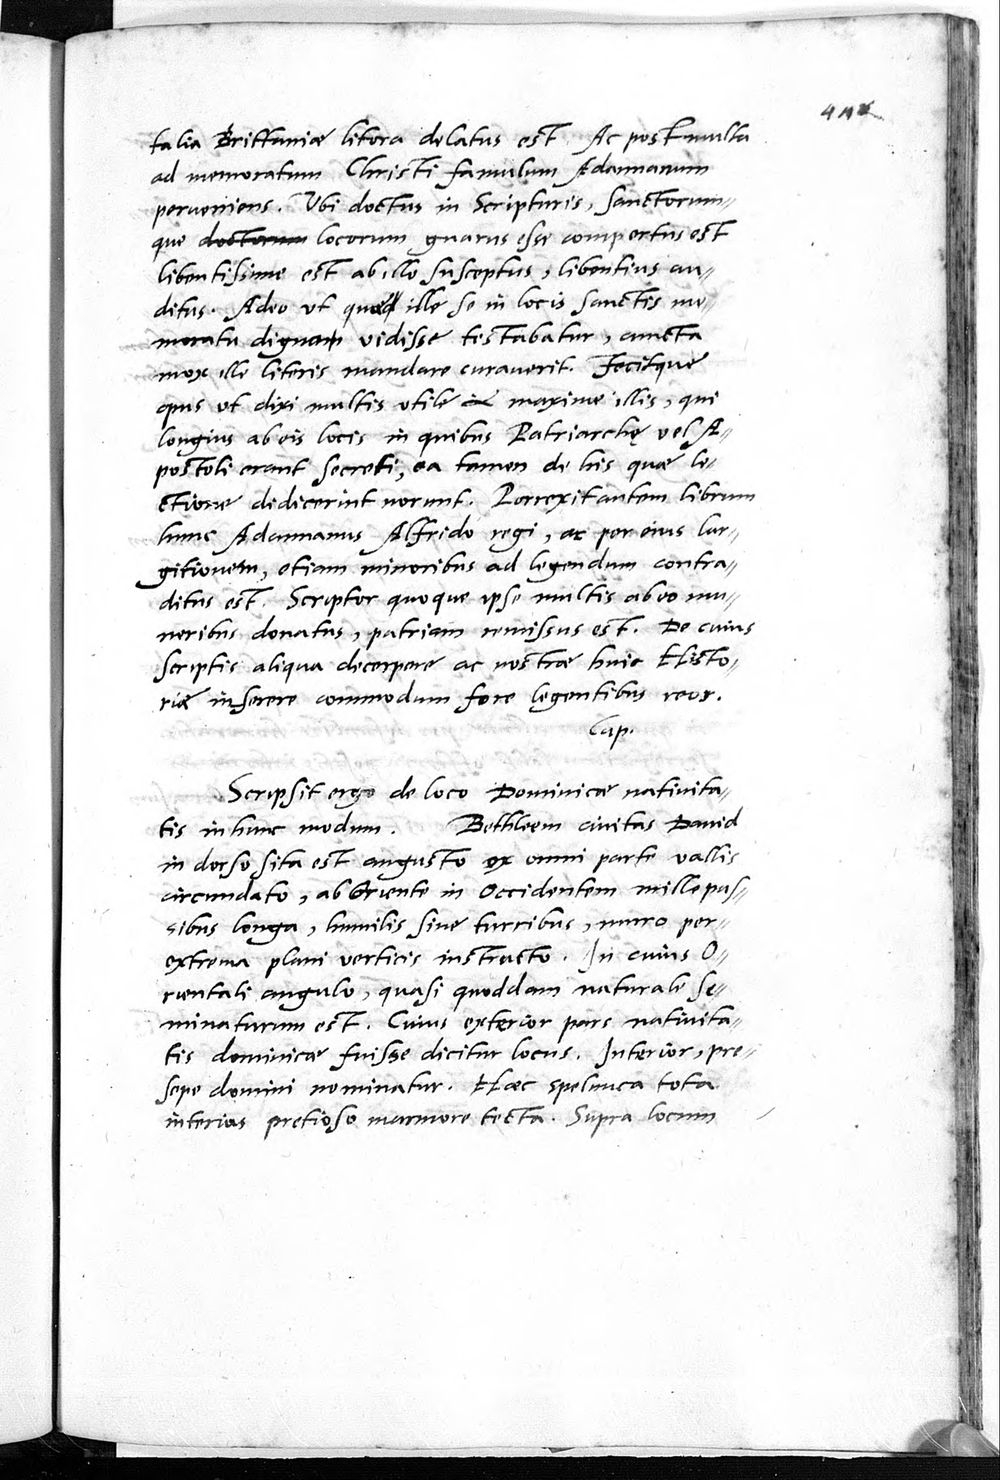 talia Brittaniæ litora delatus est. Ac post multa
ad memoratum Christi famulum Adamnanum
perueniens. Vbi doctus in Scripturis, sanctorum-
que doctorum locorum gnarus esse compertus est
libentissime est ab illo susceptus, libentius au-
ditus. Adeo ut quæ ille se in locis sanctis me-
moratu dignam vidisse testabatur, cuncta
mox ille literis mandare curaverit. Fecitque
opus ut dixi multis utile & maxime illis, qui
longius ab eis locis in quibus Patriarchę vel A-
postoli erant secreti, ea tamen de his quæ le-
ctione didicerint norunt. Porrexit autem librum
hunc Adamnanus Alfrido regi, ac per eius lar-
gitionem, etiam minoribus ad legendum contra-
ditus est. Scriptor quoque ipse multis ab eo mu-
neribus donatus, patriam remissus est. De cuius
scriptis aliqua decerpere ac nostræ huic Histo-
riæ inserere commodum fore legentibus reor.
Cap.
Scripsit ergo de loco Dominicæ nativita-
tis in hunc modum. Bethleem civitas David
in dorso sita est angusto ex omni parte vallis
circundato, ab Oriente in Occidentem mille pas-
sibus longa, humilis sine turribus, muro per
extrema plani verticis instructo. In cuius O-
rientali angulo, quasi quoddam naturale se-
minaturum est. Cuius exterior pars nativita-
tis dominicæ fuisse dicitur locus. Interior, pre-
sepe domini nominatur. Hæc spelunca tota
interius pretioso marmore tecta. Supra locum